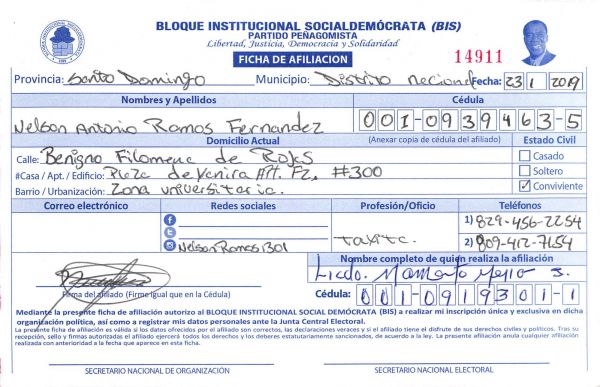 BLOQUE INSTITUCIONAL SOCIALDEMÓCRATA (BIS)
PARTIDO PEÑAGOMISTA
Libertad, Justicia, Democracia y Solidaridad
FICHA DE AFILIACION
14911
Provincia: Santo Domingo Municipio: Distrito Necional Fecha: 23 1 2019
Nombres y Apellidos Cédula
Nelson Antonio Ramos Fernandez 001-0939463-5
Domicilio Actual (Anexar copia de cédula del afiliado) Estado Civil
Calle: Benigno Filomena de Rojas Casado
#Casa / Apt. / Edificio: Plaza de Venira Apt. Fz, #300 Soltero
Barrio / Urbanización: Zona universitaria. Conviviente
Correo electrónico Redes sociales Profesión/Oficio Teléfonos
1) 829-456-2254
NelsonRamos1301 2) 809-412-7154
Nombre completo de quien realiza la afiliación
Licdo. Mejia J.
Firma del afiliado (Firme Igual que en la Cédula) Cédula: 001-0919301-1
Mediante la presente ficha de afiliación autorizo al BLOQUE INSTITUCIONAL SOCIAL DEMÓCRATA (BIS) a realizar mi inscripción única y exclusiva en dicha
organización política, así como a registrar mis datos personales ante la Junta Central Electoral.
La presente ficha de afiliación es válida si los datos ofrecidos por el afiliado son correctos, las declaraciones veraces y si el afiliado tiene el disfrute de sus derechos civiles y políticos. Tras su
recepción, sello y firmas autorizadas el afiliado ejercerá todos los derechos y los deberes estatutariamente sancionados, de acuerdo a la ley. La presente afiliación anula cualquier afiliación
realizada con anterioridad a la fecha que aparece en esta ficha.
SECRETARIO NACIONAL DE ORGANIZACIÓN SECRETARIO NACIONAL ELECTORAL